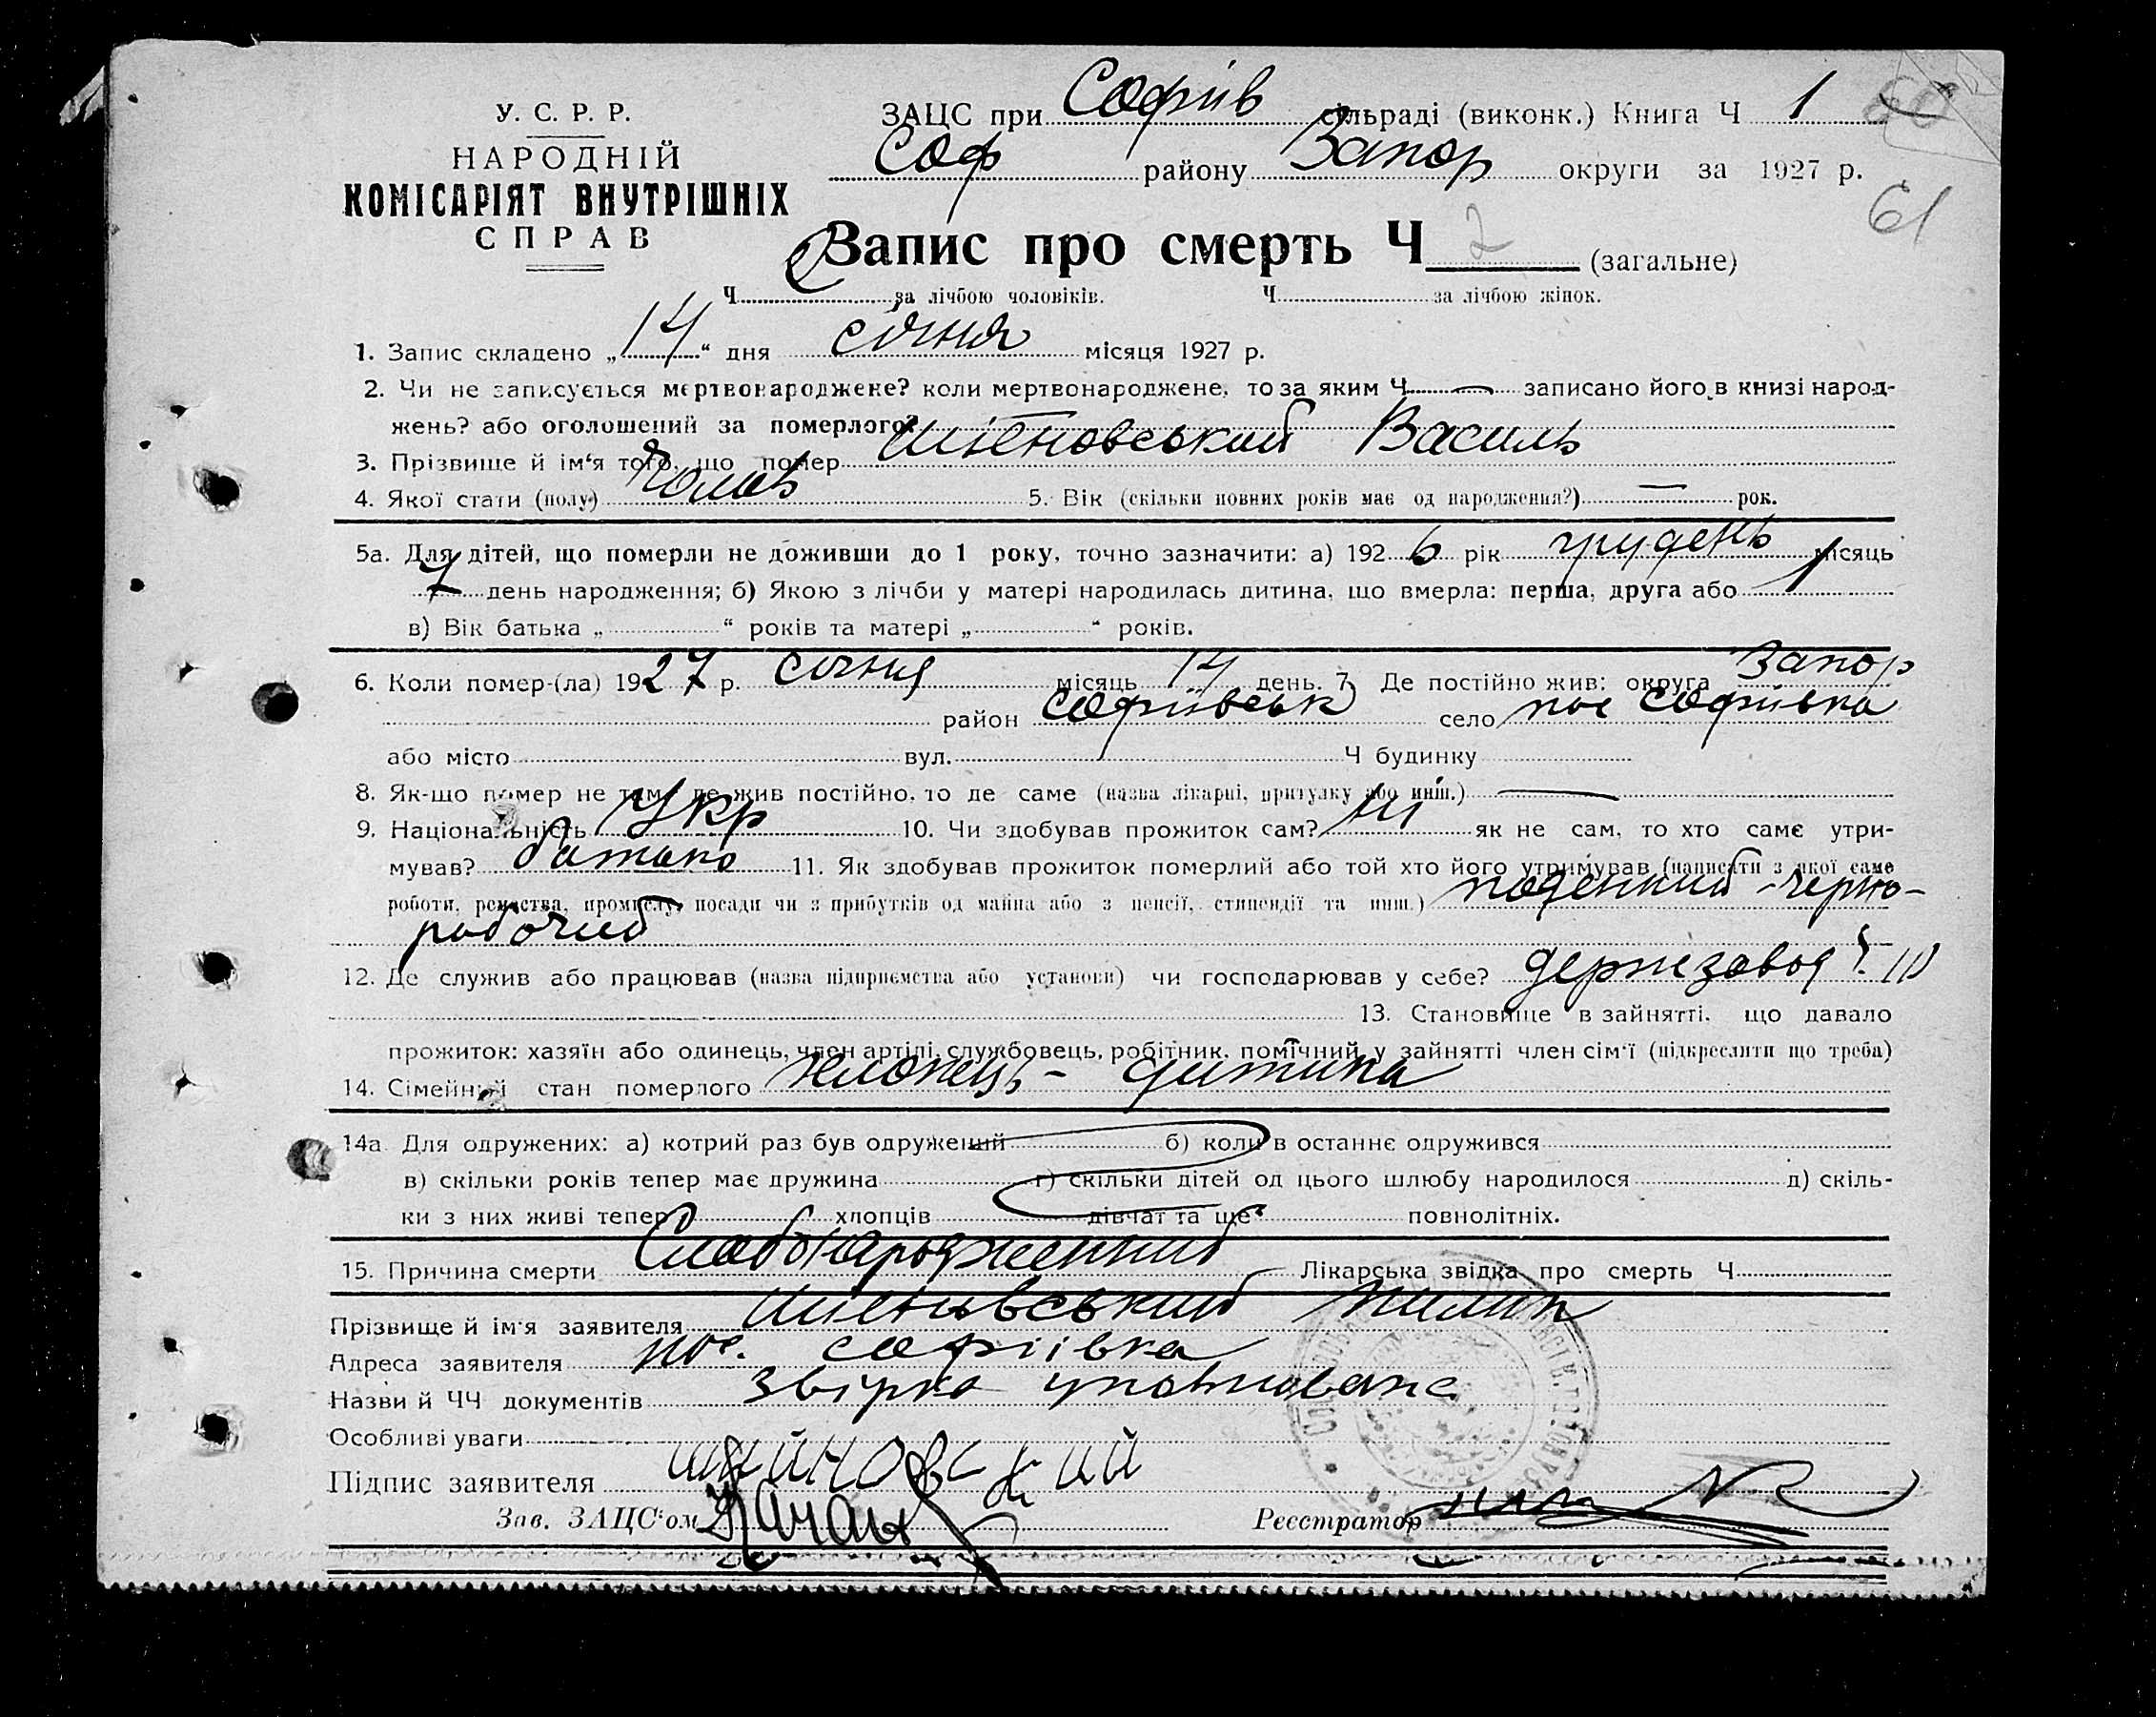 У. С. Р. Р.
НАРОДНІЙ
КОМІСАРІЯТ ВНУТРІШНІХ
СПРАВ
ЗАЦС при Софіїв сільраді (виконк.) Книга Ч 1
Соф району Запор округи за 1927 р.
61
Запис про смерть Ч 2 (загальне)
Ч за лічбою чоловіків. Ч за лічбою жінок.
1. Запис складено „14“ дня січня місяця 1927 р.
2. Чи не записується мертвонароджене? коли мертвонароджене, то за яким Ч — записано його в книзі народ-
жень? або оголошений за померлого?
3. Прізвище й ім‘я того, що помер Василь
4. Якої стати (полу) Чолов 5. Вік (скільки повних років має од народження?) — рок.
5а. Для дітей, що померли не доживши до 1 року, точно зазначити: а) 1926 рік грудень місяць
7 день народження; б) Якою з лічби у матері народилась дитина, що вмерла: перша, друга або 1
в) Вік батька „ “ років та матері „ “ років.
6. Коли помер-(ла) 1927 р. січня місяць 14 день. 7. Де постійно жив: округа Запор
район Софиівськ село пос Софиівка
або місто вул. Ч будинку
8. Як-що помер не там, де жив постійно, то де саме (назва лікарні, притулку або инш.) —
9. Національність Укр 10. Чи здобував прожиток сам? ні як не сам, то хто саме утри-
мував? батько 11. Як здобував прожиток померлий або той хто його утримував (написати з якої саме
роботи, ремества, промислу, посади чи з прибутків од майна або з пенсії, стипендії та инш.) поденний - черно-
рабочий
12. Де служив або працював (назва підприємства або установи) чи господарював у себе? держзавод
13. Становище в зайнятті, що давало
прожиток: хазяїн або одинець, член артілі, службовець, робітник, помічний у зайнятті член сім‘ї (підкреслити що треба)
14. Сімейний стан померлого - дитина
14а Для одружених: а) котрий раз був одружений б) коли в останнє одружився
в) скільки років тепер має дружина г) скільки дітей од цього шлюбу народилося д) скіль-
ки з них живі тепер хлопців дівчат та ще повнолітніх.
15. Причина смерти Слабонарожденний Лікарська звідка про смерть Ч
Прізвище й ім‘я заявителя Пилип
Адреса заявителя пос. Софиівка
Назви й ЧЧ документів звірка
Особливі уваги
Підпис заявителя
Зав. ЗАЦС‘ом Качан
Реєстратор